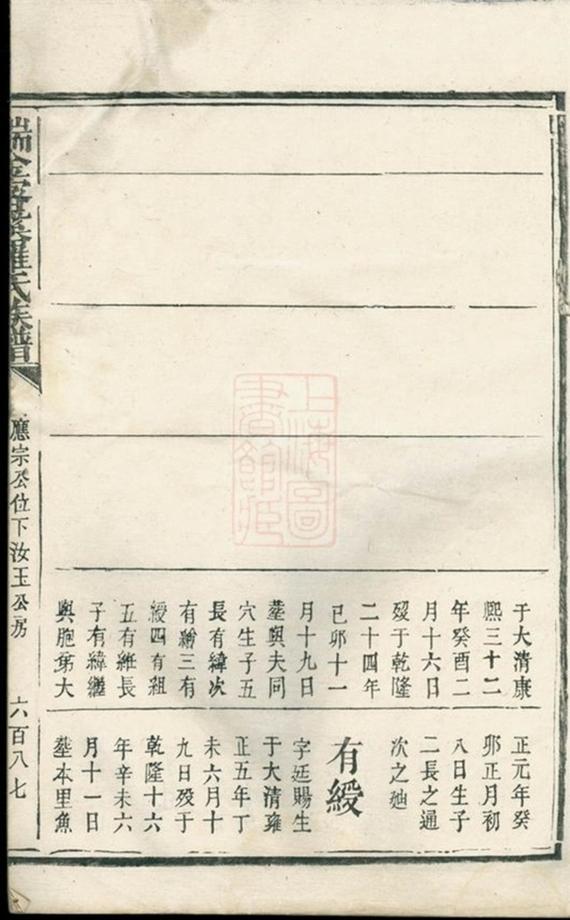 于大清康
熙三十二
年癸酉二
月十六日
歿于乾隆
二十四年
己卯十一
月十九日
塟與夫同
穴生子五
長有緯次
有繪三有
綬四有組
五有維長
子有緯繼
與胞弟大
正元年癸
卯正月初
八日生子
二長之通
次之迪
有綬
字廷賜生
于大清雍
正五年丁
未六月十
九日歿于
乾隆十六
年辛未六
月十一日
塟本里魚
羅氏族譜
應宗公位下汝玉公房
六百八七
上海圖
書館藏